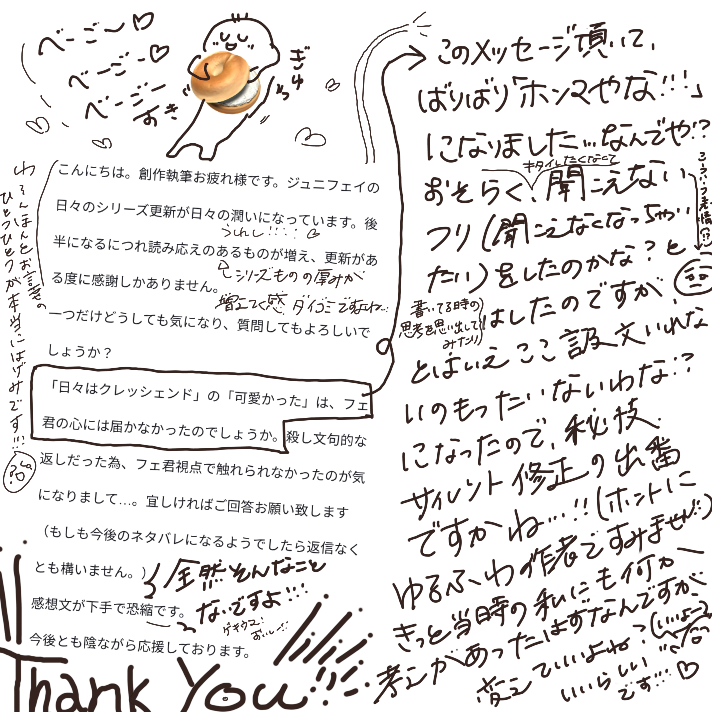 べーごー♡
べーごー♡
べーごー
すき
ぎゅ
っ
こんにちは。創作執筆お疲れ様です。ジュニフェイの
日々のシリーズ更新が日々の潤いになっています。後
うれし!!!!♡
半になるにつれ読み応えのあるものが増え、更新があ
る度に感謝しかありません。
シリーズものの厚みが
増えてく感、ダイゴミですよね…
一つだけどうしても気になり、質問してもよろしいで
しょうか？
「日々はクレッシェンド」の「可愛かった」は、フェ
君の心には届かなかったのでしょうか。殺し文句的な
返しだった為、フェ君視点で触れられなかったのが気
になりまして…。宜しければご回答お願い致します
（もしも今後のネタバレになるようでしたら返信なく
とも構いません。）
感想文が下手で恐縮です。
今後とも陰ながら応援しております。
全然そんなこと
ないですよ!!!
ゲキウマ!
わ〜んほんとお言葉の
ひとつひとつが本当にはげみです!!!
Thank You!!!
このメッセージ頂いて、
ばりばり「ホンマやな!!!」
になりました…なんでや!?
おそらく、聞こえない
キタイしたくなくて
フリ(聞こえなくなっちゃい
たい)をしたのかな？と
はしたのですが、
書いてる時の
思考を思い出して
みたり
とはいえここ誤文いれな
いのもったいないわな!?
になったので、秘技
サイレント修正の出番
ですかね…!!(ホントに
ゆるふわ作者ですみません!!)
きっと当時の私にも何か
考えがあったはずなんですが、
変えていいよね？(いいよ〜)
いいらしい
です!!!♡